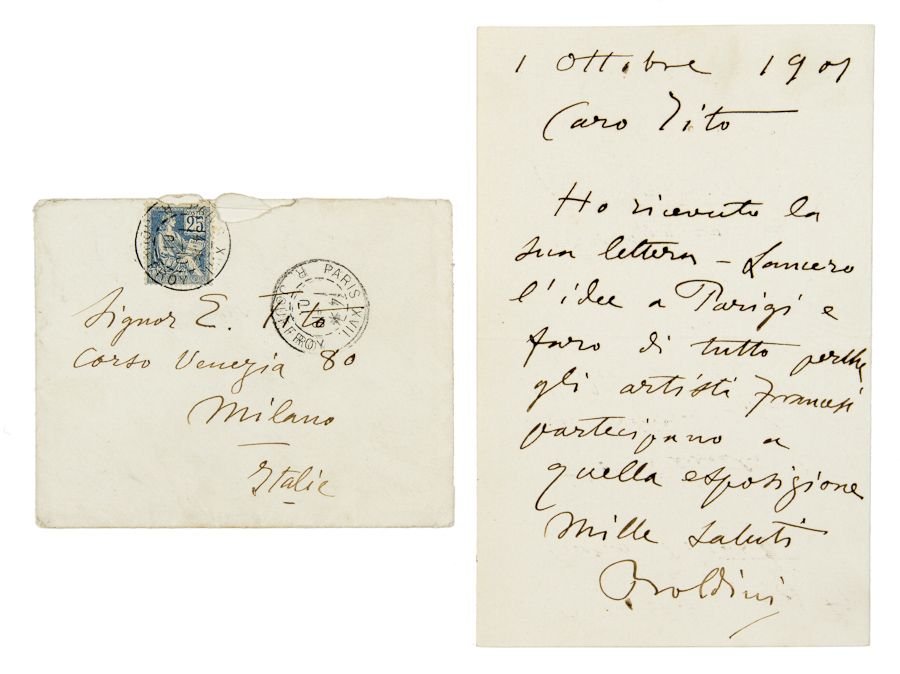 25
PARIS XVII
R. JOUFFROY
Signor E.
Corso Venezia 80
Milano
Italie
1 Ottobre 1901
Caro Tito
Ho ricevuto la
sua lettera – Lancero
l'idee a Parigi e
faro di tutto perche
gli artisti Francesi
partecipano a
quella esposizione
Mille saluti
Boldini